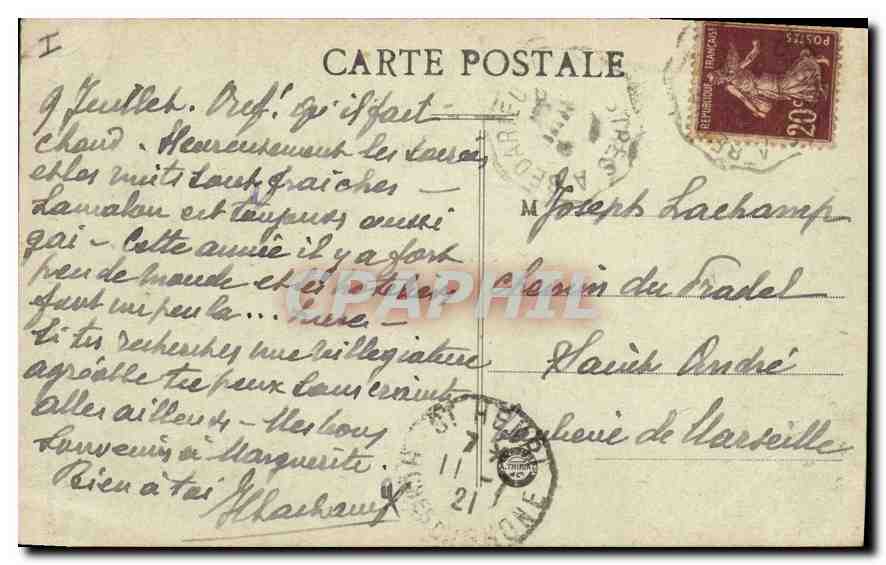 I
CARTE POSTALE
POSTES
REPUBLIQUE FRANÇAISE
20c
9 Juillet. Ouf! qu'il fait
chaud. Heureusement les soirées
et les nuits sont fraîches —
Lamalou est toujours aussi
gai — Cette année il y a fort
peu de monde et les hôteliers
font un peu la ...
Si tu recherches une villegiature
agréable tu peux sans crainte
aller ailleurs — Mes bons
souvenirs à Marguerite.
Bien à toi
HLachamp
M Joseph Lachamp
Chemin du Pradel
Saint André
banlieue de Marseille
CPAPHIL
ST HENRI
7
11
21
RHONE